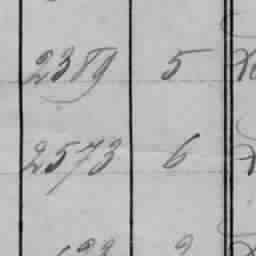 2389 5
2573 6